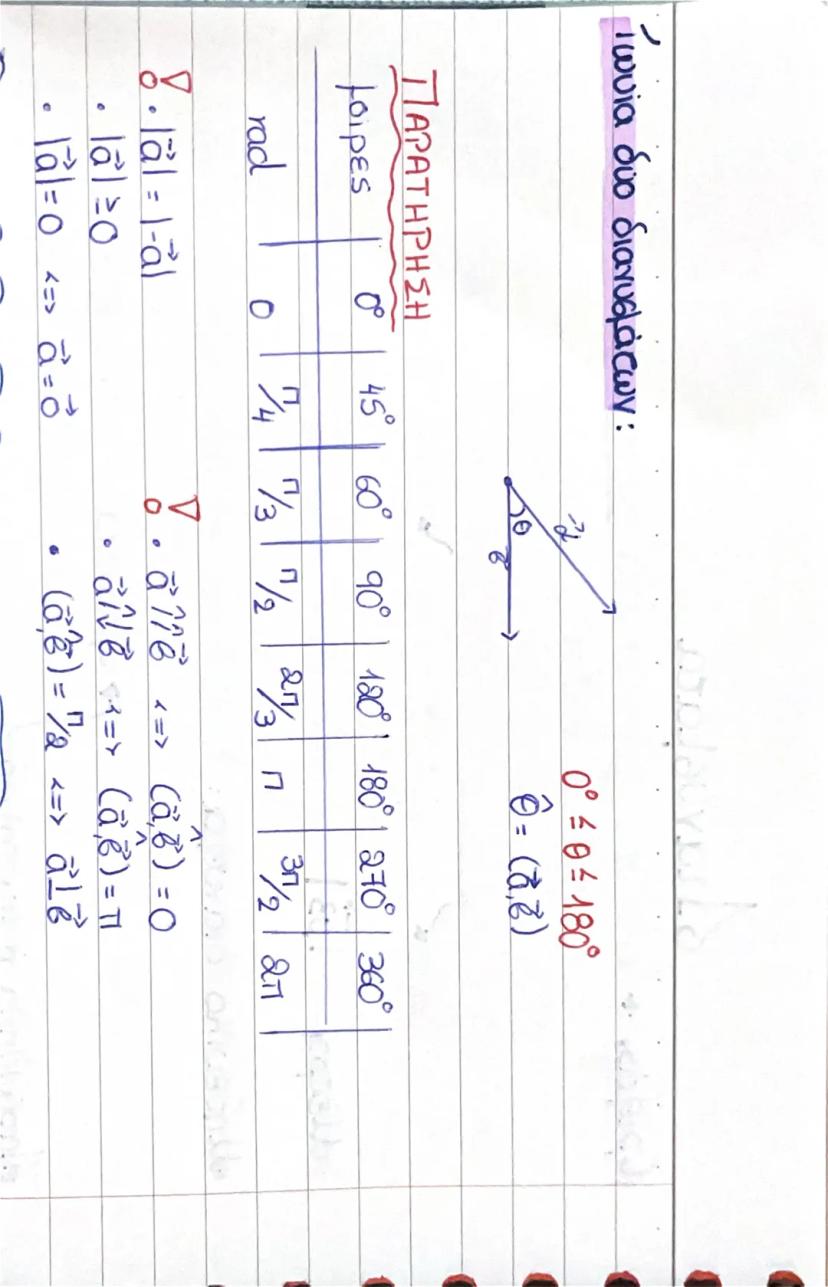 Γωνία δύο διανυσμάτων:
0° ≤ θ ≤ 180°
α⃗
θ
β⃗
θ̂ = (α⃗,β⃗)
ΠΑΡΑΤΗΡΗΣΗ
μοίρες 0° 45° 60° 90° 120° 180° 270° 360°
rad 0 π/4 π/3 π/2 2π/3 π 3π/2 2π
• |α⃗| = |-α⃗|
• |α⃗| ≥ 0
• |α⃗| = 0 <=> α⃗ = 0⃗
• α⃗ ↑↑ β⃗ <=> (α⃗,^β⃗) = 0
• α⃗ ↑↓ β⃗ <=> (α⃗,^β⃗) = π
• (α⃗,^β⃗) = π/2 <=> α⃗ ⊥ β⃗